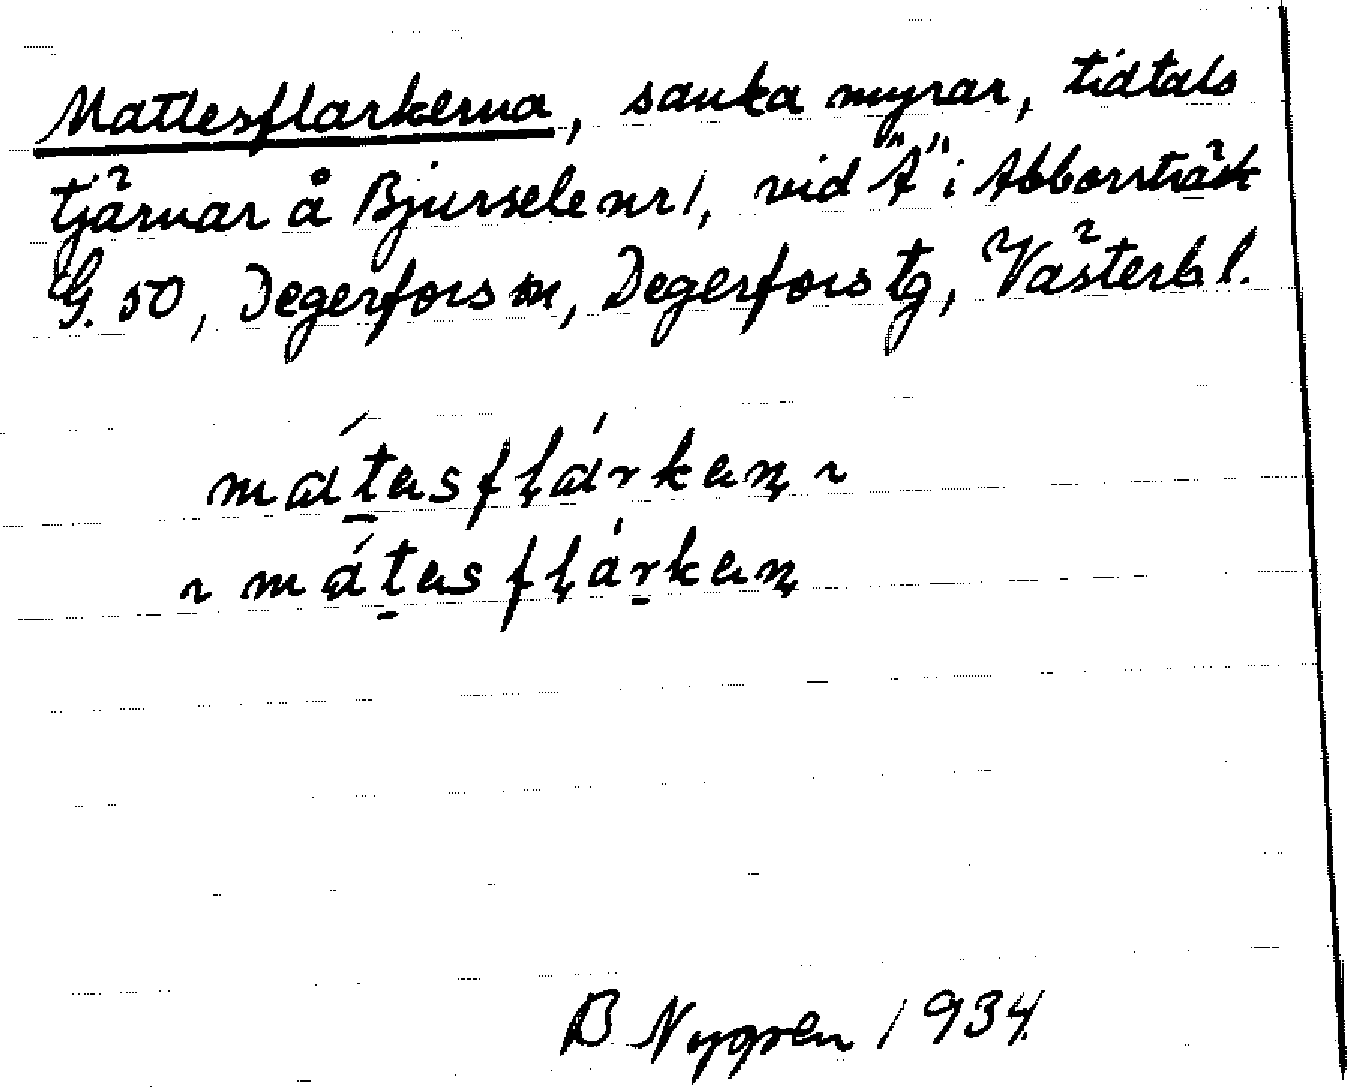 Mattesflarkerna, sanka myrar, tidtals
tjärnar å Bjursele nr 1, vid "A" i Abborrträsk
G. 50, Degerfors sn, Degerfors tg, Västerb l.
mátasflárkan ~
~ mátasflárkan
B Nygren 1934